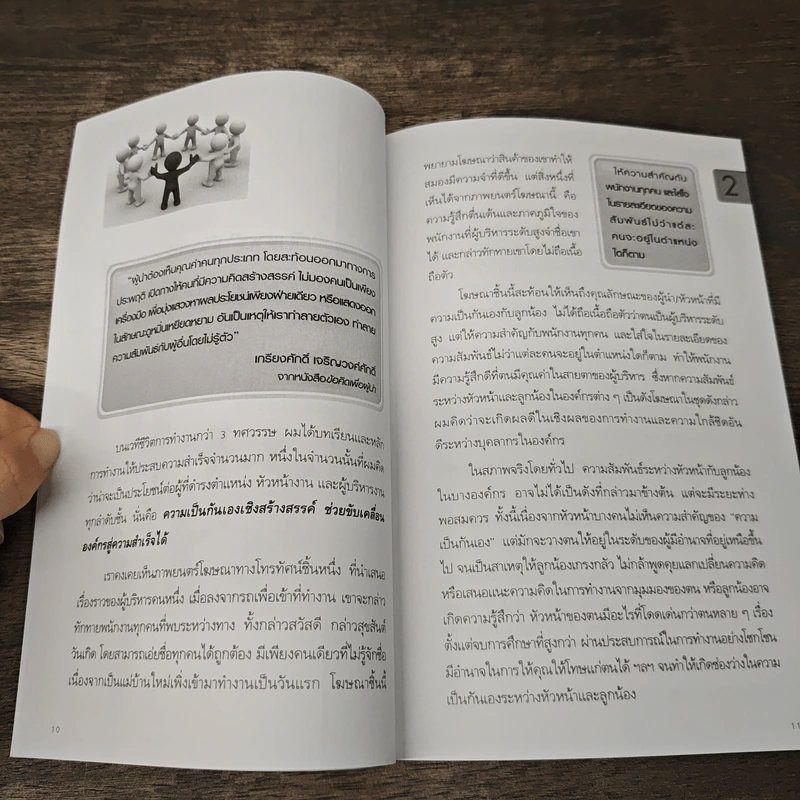 "ผู้นำต้องเห็นคุณค่าคนทุกประเภท โดยสะท้อนออกมาทางการ
ประพฤติ เปิดทางให้คนที่มีความคิดสร้างสรรค์ ไม่มองคนเป็นเพียง
เครื่องมือ เพื่อมุ่งแสวงหาผลประโยชน์เพียงฝ่ายเดียว หรือแสดงออก
ในลักษณะดูหมิ่นเหยียดหยาม อันเป็นเหตุให้เราทำลายตัวเอง ทำลาย
ความสัมพันธ์กับผู้อื่นโดยไม่รู้ตัว"
เกรียงศักดิ์ เจริญวงศ์ศักดิ์
จากหนังสือข้อคิดเพื่อผู้นำ
บนเวทีชีวิตการทำงานกว่า 3 ทศวรรษ ผมได้บทเรียนและหลัก
การทำงานให้ประสบความสำเร็จจำนวนมาก หนึ่งในจำนวนนั้นที่ผมคิด
ว่าน่าจะเป็นประโยชน์ต่อผู้ที่ดำรงตำแหน่ง หัวหน้างาน และผู้บริหารงาน
ทุกลำดับชั้น นั่นคือ ความเป็นกันเองเชิงสร้างสรรค์ ช่วยขับเคลื่อน
องค์กรสู่ความสำเร็จได้
เราคงเคยเห็นภาพยนตร์โฆษณาทางโทรทัศน์ชิ้นหนึ่ง ที่นำเสนอ
เรื่องราวของผู้บริหารคนหนึ่ง เมื่อลงจากรถเพื่อเข้าที่ทำงาน เขาจะกล่าว
ทักทายพนักงานทุกคนที่พบระหว่างทาง ทั้งกล่าวสวัสดี กล่าวสุขสันต์
วันเกิด โดยสามารถเอ่ยชื่อทุกคนได้ถูกต้อง มีเพียงคนเดียวที่ไม่รู้จักชื่อ
เนื่องจากเป็นแม่บ้านใหม่เพิ่งเข้ามาทำงานเป็นวันแรก โฆษณาชิ้นนี้
10
พยายามโฆษณาว่าสินค้าของเขาทำให้
สมองมีความจำที่ดีขึ้น แต่สิ่งหนึ่งที่
เห็นได้จากภาพยนตร์โฆษณานี้ คือ
ความรู้สึกตื่นเต้นและภาคภูมิใจของ
พนักงานที่ผู้บริหารระดับสูงจำชื่อเขา
ได้ และกล่าวทักทายเขาโดยไม่ถือเนื้อ
ถือตัว
ให้ความสำคัญกับ
พนักงานทุกคน และใส่ใจ
ในรายละเอียดของความ
สัมพันธ์ไม่ว่าแต่ละ
คนจะอยู่ในตำแหน่ง
ใดก็ตาม
2
โฆษณาชิ้นนี้สะท้อนให้เห็นถึงคุณลักษณะของผู้นำ/หัวหน้าที่มี
ความเป็นกันเองกับลูกน้อง ไม่ได้ถือเนื้อถือตัวว่าตนเป็นผู้บริหารระดับ
สูง แต่ให้ความสำคัญกับพนักงานทุกคน และใส่ใจในรายละเอียดของ
ความสัมพันธ์ไม่ว่าแต่ละคนจะอยู่ในตำแหน่งใดก็ตาม ทำให้พนักงาน
มีความรู้สึกดีที่ตนมีคุณค่าในสายตาของผู้บริหาร ซึ่งหากความสัมพันธ์
ระหว่างหัวหน้าและลูกน้องในองค์กรต่าง ๆ เป็นดังโฆษณาในชุดดังกล่าว
ผมคิดว่าจะเกิดผลดีในเชิงผลของการทำงานและความใกล้ชิดอัน
ดีระหว่างบุคลากรในองค์กร
ในสภาพจริงโดยทั่วไป ความสัมพันธ์ระหว่างหัวหน้ากับลูกน้อง
ในบางองค์กร อาจไม่ได้เป็นดังที่กล่าวมาข้างต้น แต่จะมีระยะห่าง
พอสมควร ทั้งนี้เนื่องจากหัวหน้าบางคนไม่เห็นความสำคัญของ "ความ
เป็นกันเอง" แต่มักจะวางตนให้อยู่ในระดับของผู้มีอำนาจที่อยู่เหนือขึ้น
ไป จนเป็นสาเหตุให้ลูกน้องเกรงกลัว ไม่กล้าพูดคุยแลกเปลี่ยนความคิด
หรือเสนอแนะความคิดในการทำงานจากมุมมองของตน หรือลูกน้องอาจ
เกิดความรู้สึกว่า หัวหน้าของตนมีอะไรที่โดดเด่นกว่าตนหลาย ๆ เรื่อง
ตั้งแต่จบการศึกษาที่สูงกว่า ผ่านประสบการณ์ในการทำงานอย่างโชกโชน
มีอำนาจในการให้คุณให้โทษแก่ตนได้ ฯลฯ จนทำให้เกิดช่องว่างในความ
เป็นกันเองระหว่างหัวหน้าและลูกน้อง
11